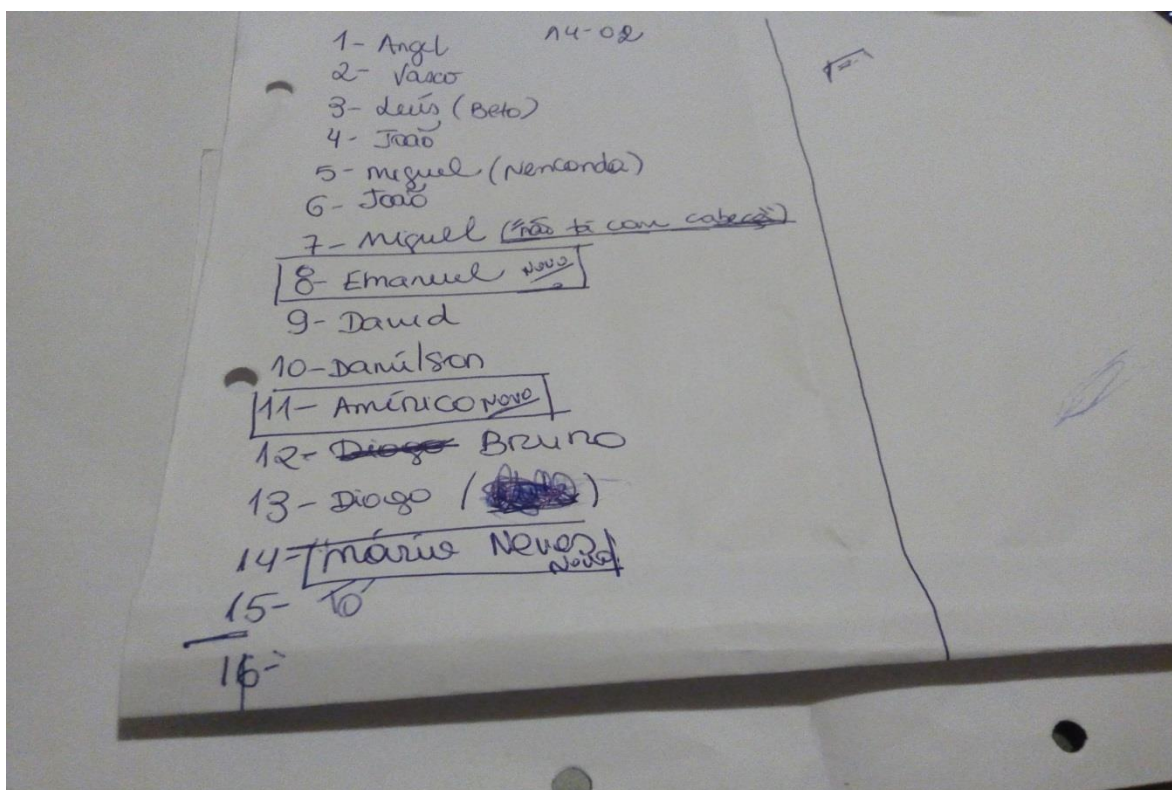 14-02
1- Angel
2- Vasco
3- Luís (Beto)
4- João
5- Miguel (Nenconda)
6- João
7- Miguel (não tá com cabeça)
8- Emanuel Novo
9- David
10- Danilson
11- Américo Novo
12- Diogo Bruno
13- Diogo ( )
14- Mário Neves Novo
15- Tó
16-